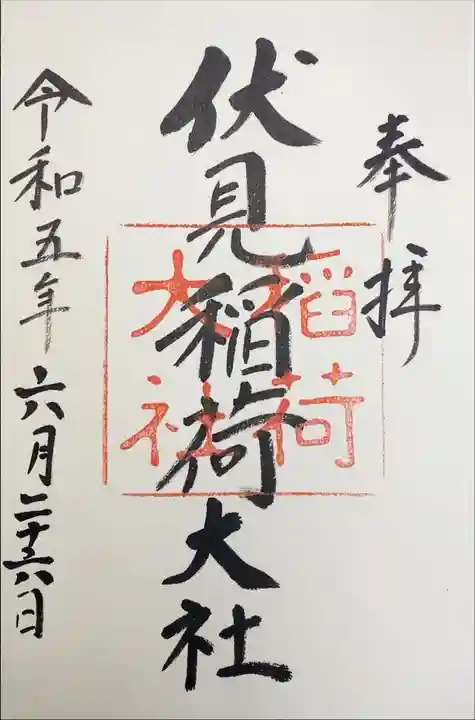 奉拝
伏見稲荷大社
稲荷
大社
令和五年六月二十六日